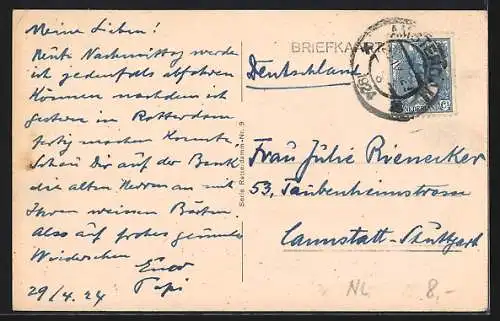 Meine Lieben!
Heute Nachmittag werde
ich jedenfalls abfahren
können nachdem ich
gestern in Rotterdam
fertig machen konnte.
Schau Dir auf der Bank
die alten Herren an mit
Ihren weissen Bärten.
Also auf frohes gesundes
Wiedersehen
Euer
Papi
29/4. 24
Serie Rotterdam-Nr. 9
BRIEFKAART
Deutschland
AMSTERD
1924
Frau Julie Rienecker
53, Taubenheimstrasse
Cannstatt-Stuttgart
NL 8,-